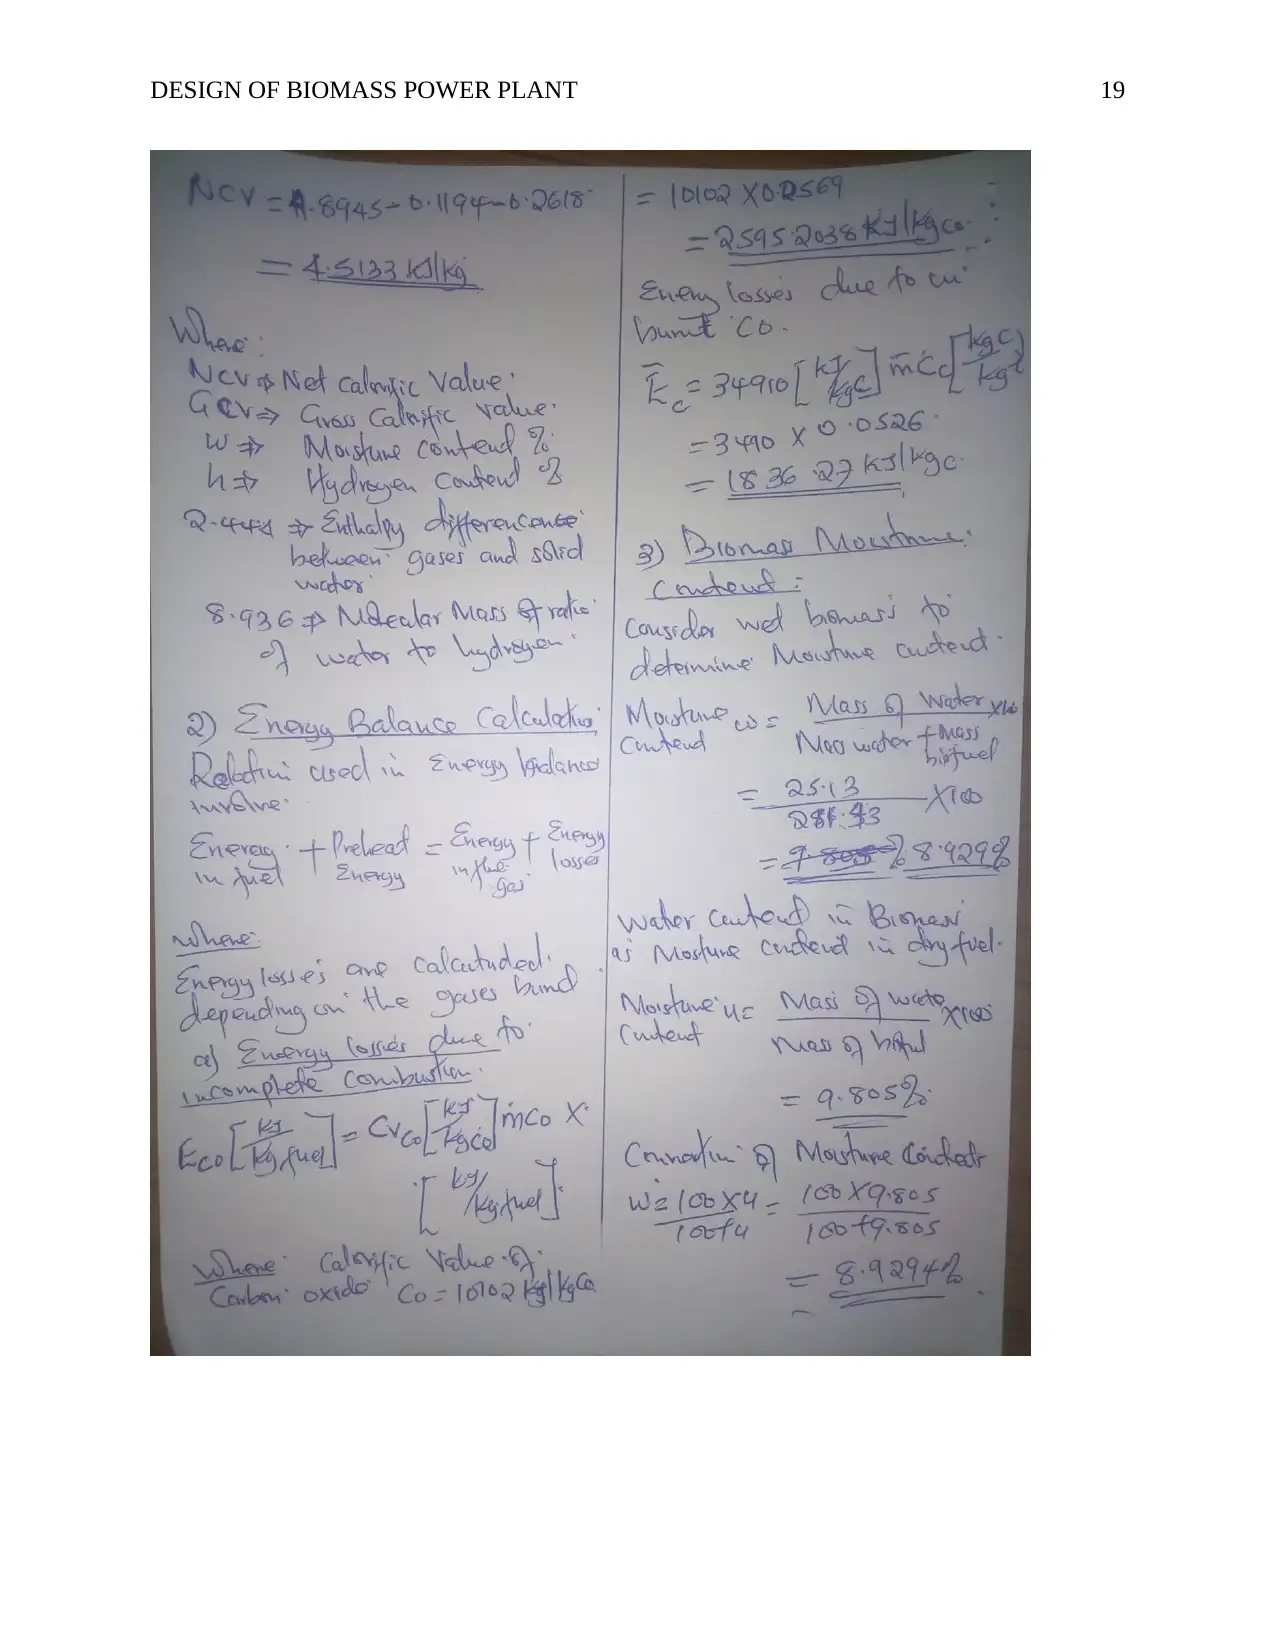 DESIGN OF BIOMASS POWER PLANT 19
NCV = 4.8945 - 0.1194 - 0.2618
= 4.5133 KJ/kg
Where:
NCV => Net Calorific Value.
GCV => Gross Calorific Value.
W => Moisture Contend %
h => Hydrogen Contend %
2.444 => Enthalpy
between gases and solid
water
8.936 => Molecular Mass of ratio
of water to hydrogen.
2) Energy Balance Calculation;
used in Energy balance
involve.
Energy + Preheat = Energy + Energy
in fuel Energy in flue losses
gas
Where:
Energy losses are
depending on the gases
a) Energy losses due to
incomplete Combustion.
Eco [KJ/kg fuel] = CVco [KJ/kg co] ṁco X
[kg/kg fuel]
Where Calorific Value of
Carbon oxide CO = 10102 /kgCo
= 10102 X 0.2569
= 2595.2038 KJ/kgco
Energy losses due to un
burnt CO.
Ec = 34910 [KJ/kgC] ṁCc [kgC/kg]
= 3490 X 0.0526
= 1836.27 KJ/kgc
3) Biomass Moisture
Contend:
Consider wet biomass to
determine Moisture contend.
Moisture w = Mass of Water X100
Contend Mass water + Mass
biofuel
= 25.13 X100
= % 8.929%
Water Contend in Biomass
as Mosture contend in dry fuel.
Moisture u = Mass of water X100
Contend Mass of
= 9.805%
of Moisture
W = 100 X u = 100 X 9.805
100 + u 100 + 9.805
= 8.9294%